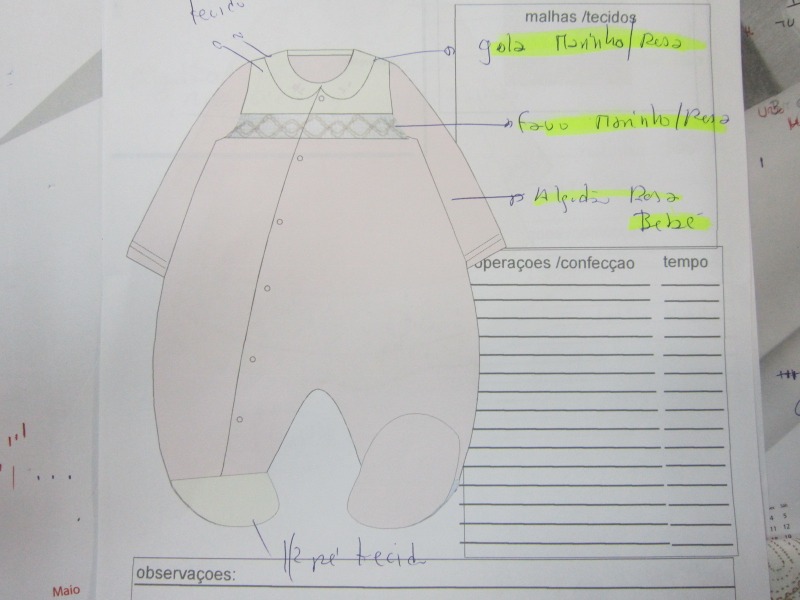 tecido
malhas /tecidos
gola Marinho/Rosa
favo Marinho/Rosa
Algodão Rosa
Bebé
operaçoes /confecçao tempo
1/2 pé tecido
observaçoes:
Maio